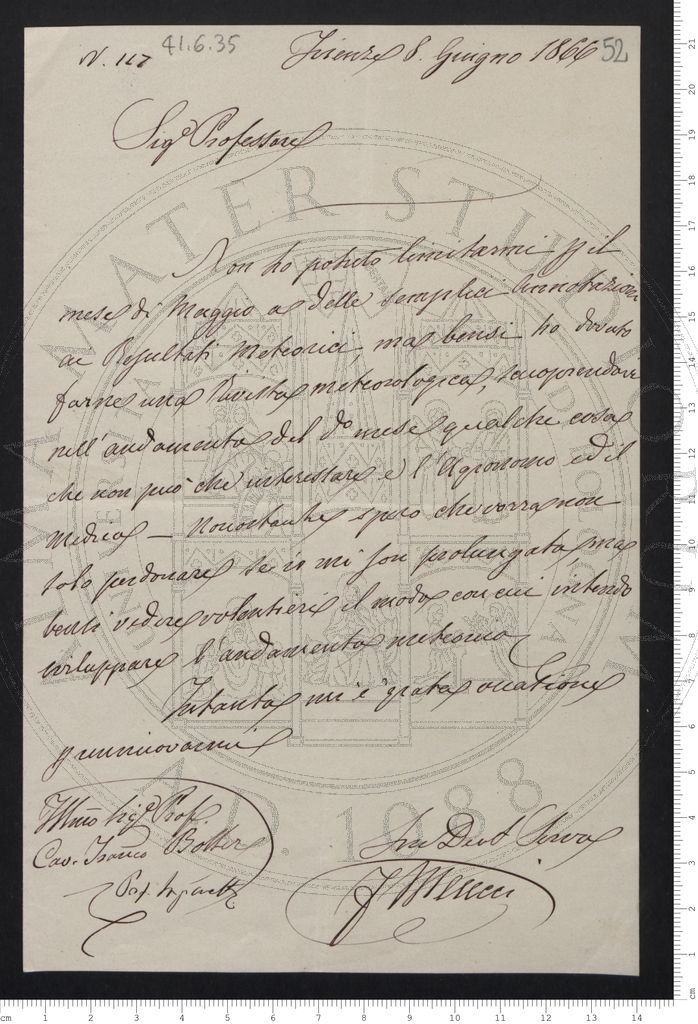 N. 117 41.6.35 Firenze 8. Giugno 1866 52
Sigr Professore
Non ho potuto limitarmi pr il
mese di Maggio a delle semplici Annotazioni
ai Resultati Meteorici, ma bensì ho dovuto
farne una Rivista meteorologica, scuoprendosi
nell'andamento del do mese qualche cosa
che non può che interessare e l'Agronomo ed il
Medico — Nonostante spero che vorrà non
solo perdonare se io mi son prolungato, ma
bensì vedere volentieri il modo con cui intendo
sviluppare l'andamento meteorico
Intanto mi è grata occasione
pr rinnuovarmi
Illmo Sigr Prof.
Cav. Franco Botter
Suo Devot Servo
F Meucci
ALMA MATER STUDIORUM
A.D. 1088